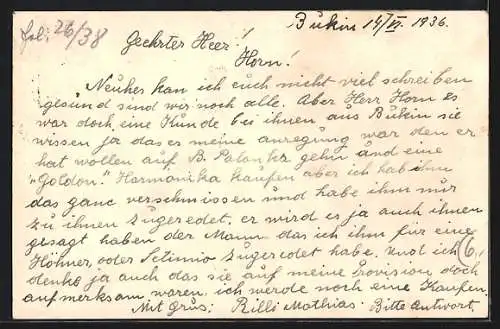 Bukin 14/VI. 1936.
fol: 26/38
Geehrter Heer!
Horn!
Neuhes kan ich euch nicht viel schreiben
gesund sind wir noch alle. Aber Herr Horn es
war doch eine Kunde bei ihnen aus Bukin sie
wissen ja das es meine anregung war den er
hat wollen auf B. Palanka gehn und eine
"Goldon." Harmanika kaufen aber ich hab ihm
das ganc verschmissen und habe ihm nur
zu ihnen zugeredet, er wird es ja auch ihnen
gesagt haben der Mann das ich ihm für eine
Höhner, oder Setimio zugeredet habe. Und ich
denke ja auch das sie auf meine Provision doch
aufmerksam waren. ich werde noch eine Kaufen
Mit Grus: Rilli Mathias. Bitte Antwort.